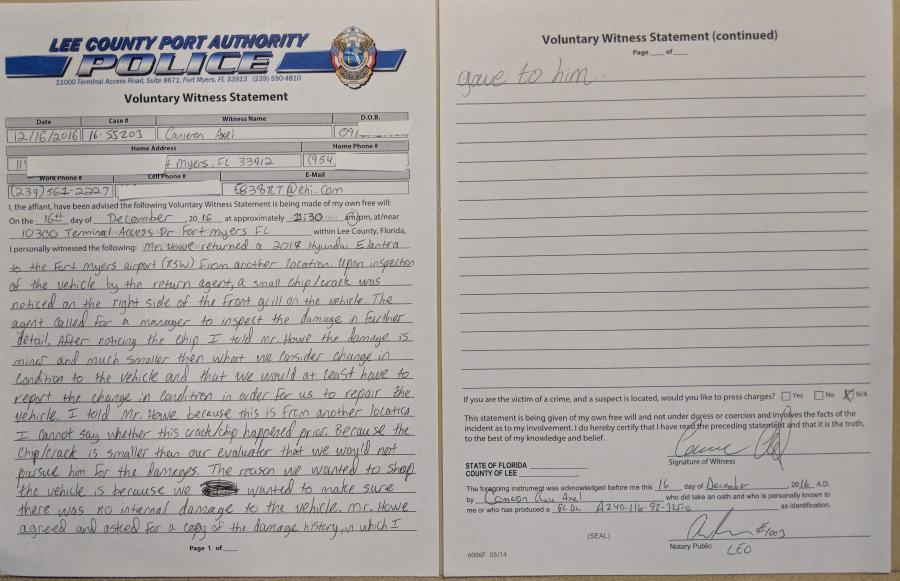 LEE COUNTY PORT AUTHORITY
POLICE
11000 Terminal Access Road, Suite 8671, Fort Myers, FL 33913 (239) 590-4810
Voluntary Witness Statement
Date Case # Witness Name D.O.B.
12/16/2016 16-55203 Cameron Axel 09/
Home Address Home Phone #
Myers, FL 33912 (954
Work Phone # Cell Phone # E-Mail
(239) 561-2227 E838RT@ehi.com
I, the affiant, have been advised the following Voluntary Witness Statement is being made of my own free will:
On the 16th day of December 2016 at approximately 1:30 am/pm, at/near
10300 Terminal Access Dr Fort myers FL within Lee County, Florida,
I personally witnessed the following: Mr. Howe returned a 2017 Hyundai Elantra
to the Fort Myers airport (RSW) From another location. Upon inspection
of the vehicle by the return agent, a small chip/crack was
noticed on the right side of the front grill on the vehicle. The
agent called for a manager to inspect the damage in further
detail. After noticing the chip I told Mr. Howe the damage is
minor and much smaller then what we consider change in
condition to the vehicle and that we would at least have to
report the change in condition in order for us to repair the
vehicle. I told Mr. Howe because this is from another location
I cannot say whether this crack/chip happened prior. Because the
chip/crack is smaller than our evaluator that we would not
pursue him for the damages. The reason we wanted to shop
the vehicle is because we wanted to make sure
there was no internal damage to the vehicle. Mr. Howe
agreed and asked for a copy of the damage history, in which I
Page 1 of
Voluntary Witness Statement (continued)
Page of
gave to him.
If you are the victim of a crime, and a suspect is located, would you like to press charges? Yes No N/A
This statement is being given of my own free will and not under duress or coercion and involves the facts of the
incident as to my involvement. I do hereby certify that I have read the preceding statement and that it is the truth,
to the best of my knowledge and belief.
Signature of Witness
STATE OF FLORIDA
COUNTY OF LEE
The foregoing instrument was acknowledged before me this 16 day of December, 2016 A.D.
by Cameron Ross Axel who did take an oath and who is personally known to
me or who has produced a FLDL as identification.
(SEAL)
#1003
Notary Public LEO
6006F 05/14